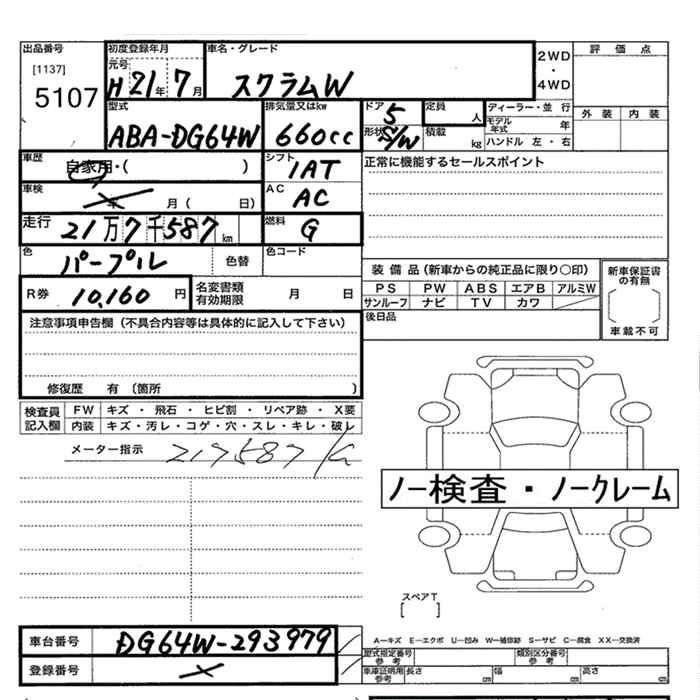 出品番号 初度登録年月 車名・グレード 2WD ・ 4WD 評価点
[1137] 元号
5107 H21年7月 スクラムW
外装 内装
型式 排気量又はkw ドア 5 定員 人 ディーラー・並行
モデル年式 年
ABA-DG64W 660cc 形状 S/W 積載 kg ハンドル 左・右
車歴 自家用・( ) シフト IAT 正常に機能するセールスポイント
車検 年 月( 日) AC AC
走行 21万7千587km 燃料 G
色 パープル 色替 色コード
装備品(新車からの純正品に限り○印) 新車保証書の有無
R券 10,160円 名変書類有効期限 月 日
PS PW ABS エアB アルミW
サンルーフ ナビ TV カワ
後日品 車載不可
注意事項申告欄(不具合内容等は具体的に記入して下さい)
修復歴 有(箇所 )
検査員記入欄 FW キズ・飛石・ヒビ割・リペア跡・X要
内装 キズ・汚レ・コゲ・穴・スレ・キレ・破レ
メーター指示 217587k
ノー検査・ノークレーム
スペアT
[ ]
車台番号 DG64W-293979
登録番号 ×
A─キズ E─エクボ U─凹み W─補修跡 S─サビ C─腐食 XX─交換済
型式指定番号参考 類別区分番号参考
車庫証明用参考 長さ cm 幅 cm 高さ cm